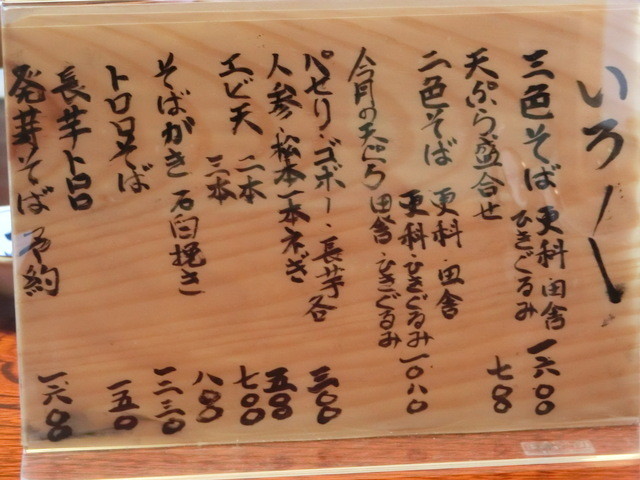 いろ〳〵
三色そば 更科・田舎
ひきぐるみ 一六〇〇
天ぷら盛合せ 七〇〇
二色そば 更科・田舎
更科・ひきぐるみ 一〇八〇
田舎・ひきぐるみ
今月の天ぷら
パセリ・ゴボー・長芋各 三〇〇
人参・松本一本ネぎ 五〇〇
エビ天 二本 七〇〇
三本 八〇〇
そばがき 石臼挽き 一二三〇
トロロそば
長芋トロロ 一五〇
発芽そば 予約 一六〇〇